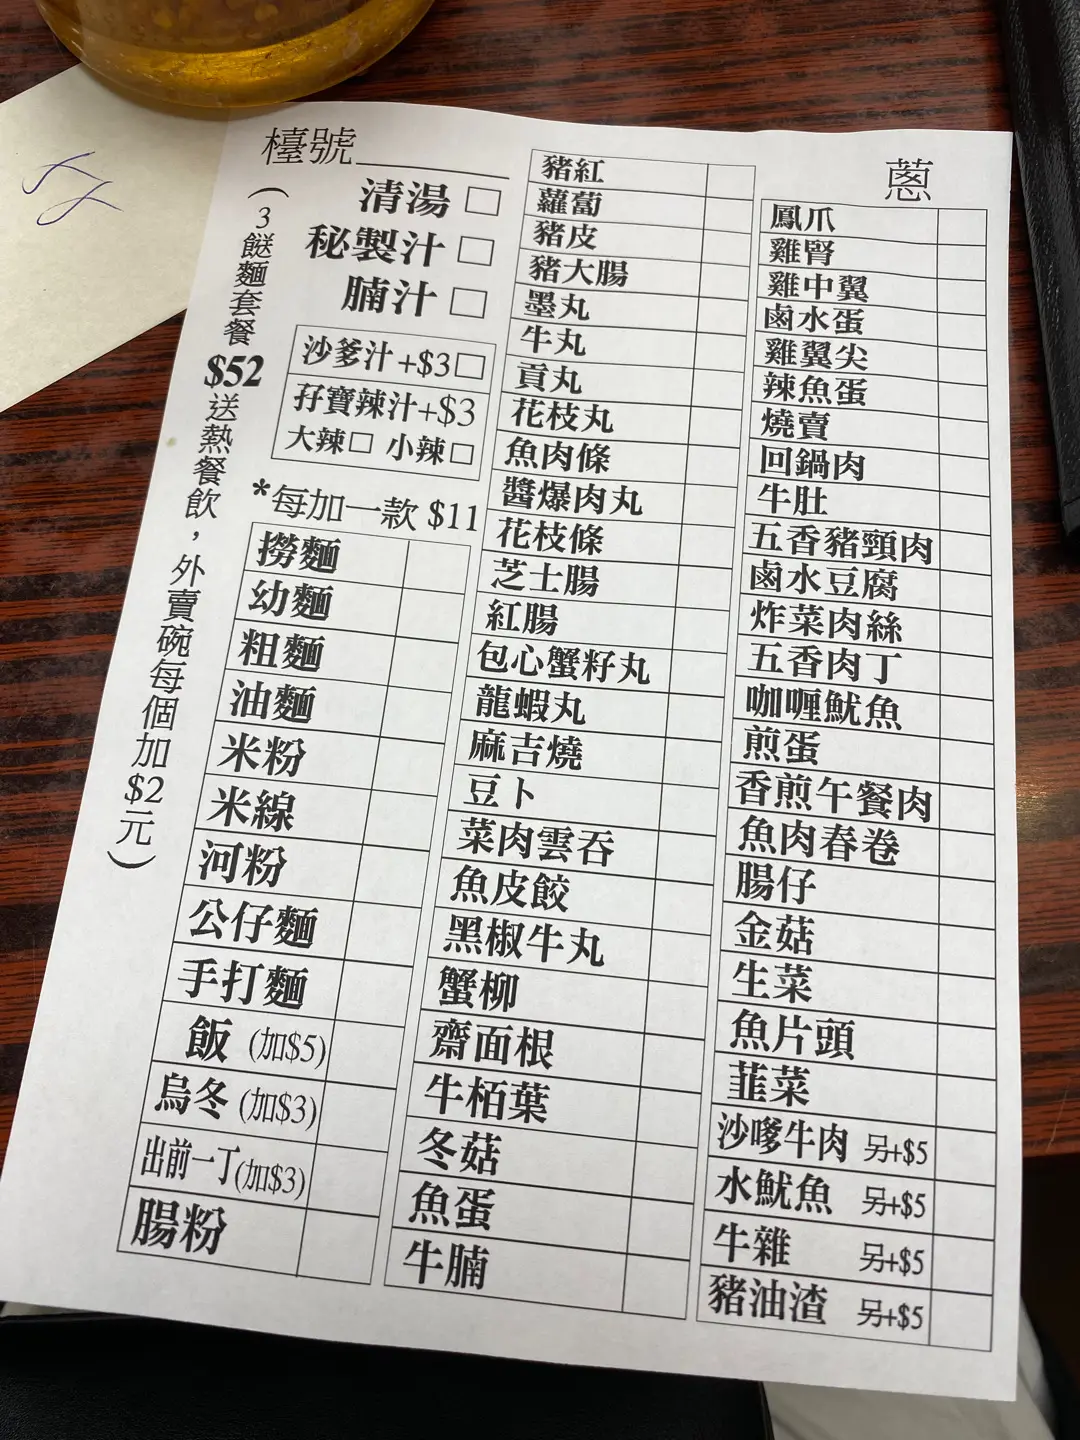 檯號
清湯 □
秘製汁 □
腩汁 □
(3餸麵套餐$52送熱餐飲，外賣碗每個加$2元)
沙爹汁+$3□
孖寶辣汁+$3
大辣□ 小辣□
*每加一款 $11
撈麵
幼麵
粗麵
油麵
米粉
米線
河粉
公仔麵
手打麵
飯 (加$5)
烏冬 (加$3)
出前一丁(加$3)
腸粉
豬紅
蘿蔔
豬皮
豬大腸
墨丸
牛丸
貢丸
花枝丸
魚肉條
醬爆肉丸
花枝條
芝士腸
紅腸
包心蟹籽丸
龍蝦丸
麻吉燒
豆卜
菜肉雲吞
魚皮餃
黑椒牛丸
蟹柳
齋面根
牛栢葉
冬菇
魚蛋
牛腩
蔥
鳳爪
雞腎
雞中翼
鹵水蛋
雞翼尖
辣魚蛋
燒賣
回鍋肉
牛肚
五香豬頸肉
鹵水豆腐
炸菜肉絲
五香肉丁
咖喱魷魚
煎蛋
香煎午餐肉
魚肉春卷
腸仔
金菇
生菜
魚片頭
韮菜
沙嗲牛肉 另+$5
水魷魚 另+$5
牛雜 另+$5
豬油渣 另+$5